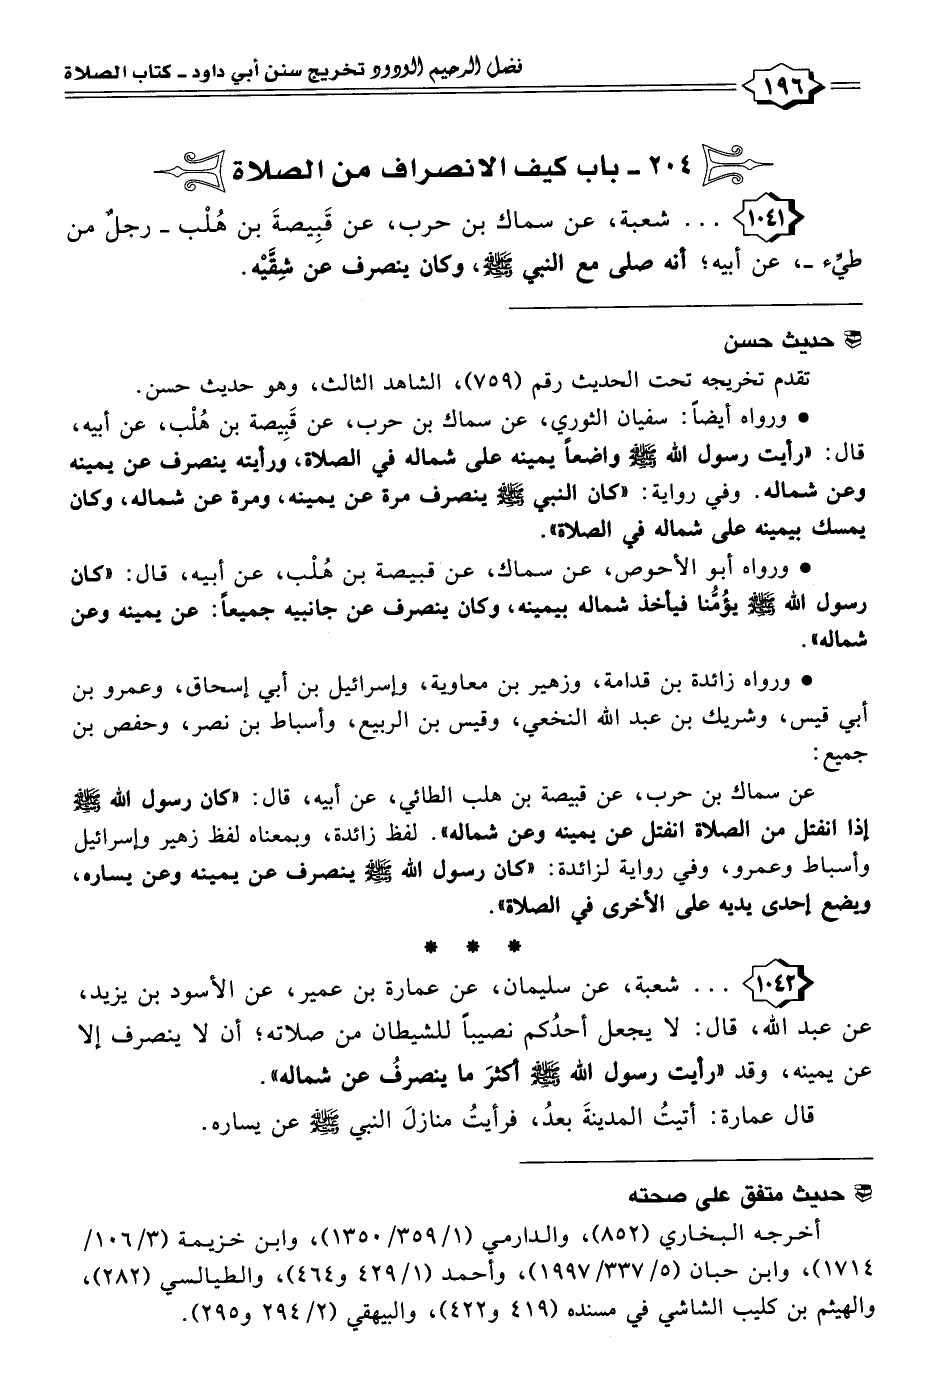 ١٩٦
فضل الرحيم الودود تخريج سنن أبي داود - كتاب الصلاة
٢٠٤ - باب كيف الانصراف من الصلاة
١٠٤١ ... شعبة، عن سماك بن حرب، عن قَبِيصةَ بن هُلْب - رجلٌ من
طيِّء -، عن أبيه؛ أنه صلى مع النبي ﷺ، وكان ينصرف عن شِقَّيْه.
حديث حسن
تقدم تخريجه تحت الحديث رقم (٧٥٩)، الشاهد الثالث، وهو حديث حسن.
• ورواه أيضاً: سفيان الثوري، عن سماك بن حرب، عن قَبِيصة بن هُلْب، عن أبيه،
قال: «رأيت رسول الله ﷺ واضعاً يمينه على شماله في الصلاة، ورأيته ينصرف عن يمينه
وعن شماله. وفي رواية: «كان النبي ﷺ ينصرف مرة عن يمينه، ومرة عن شماله، وكان
يمسك بيمينه على شماله في الصلاة».
• ورواه أبو الأحوص، عن سماك، عن قبيصة بن هُلْب، عن أبيه، قال: «كان
رسول الله ﷺ يؤُمُّنا فيأخذ شماله بيمينه، وكان ينصرف عن جانبيه جميعاً: عن يمينه وعن
شماله».
• ورواه زائدة بن قدامة، وزهير بن معاوية، وإسرائيل بن أبي إسحاق، وعمرو بن
أبي قيس، وشريك بن عبد الله النخعي، وقيس بن الربيع، وأسباط بن نصر، وحفص بن
جميع:
عن سماك بن حرب، عن قبيصة بن هلب الطائي، عن أبيه، قال: «كان رسول الله ﷺ
إذا انفتل من الصلاة انفتل عن يمينه وعن شماله». لفظ زائدة، وبمعناه لفظ زهير وإسرائيل
وأسباط وعمرو، وفي رواية لزائدة: «كان رسول الله ﷺ ينصرف عن يمينه وعن يساره،
ويضع إحدى يديه على الأخرى في الصلاة».
* * *
١٠٤٢ ... شعبة، عن سليمان، عن عمارة بن عمير، عن الأسود بن يزيد،
عن عبد الله، قال: لا يجعل أحدُكم نصيباً للشيطان من صلاته؛ أن لا ينصرف إلا
عن يمينه، وقد «رأيت رسول الله ﷺ أكثرَ ما ينصرفُ عن شماله».
قال عمارة: أتيتُ المدينةَ بعدُ، فرأيتُ منازلَ النبي ﷺ عن يساره.
حديث متفق على صحته
أخرجه البخاري (٨٥٢)، والدارمي (١/ ٣٥٩/ ١٣٥٠)، وابن خزيمة (٣/ ١٠٦/
١٧١٤)، وابن حبان (٥/ ٣٣٧/ ١٩٩٧)، وأحمد (١/ ٤٢٩ و٤٦٤)، والطيالسي (٢٨٢)،
والهيثم بن كليب الشاشي في مسنده (٤١٩ و٤٢٢)، والبيهقي (٢/ ٢٩٤ و٢٩٥).